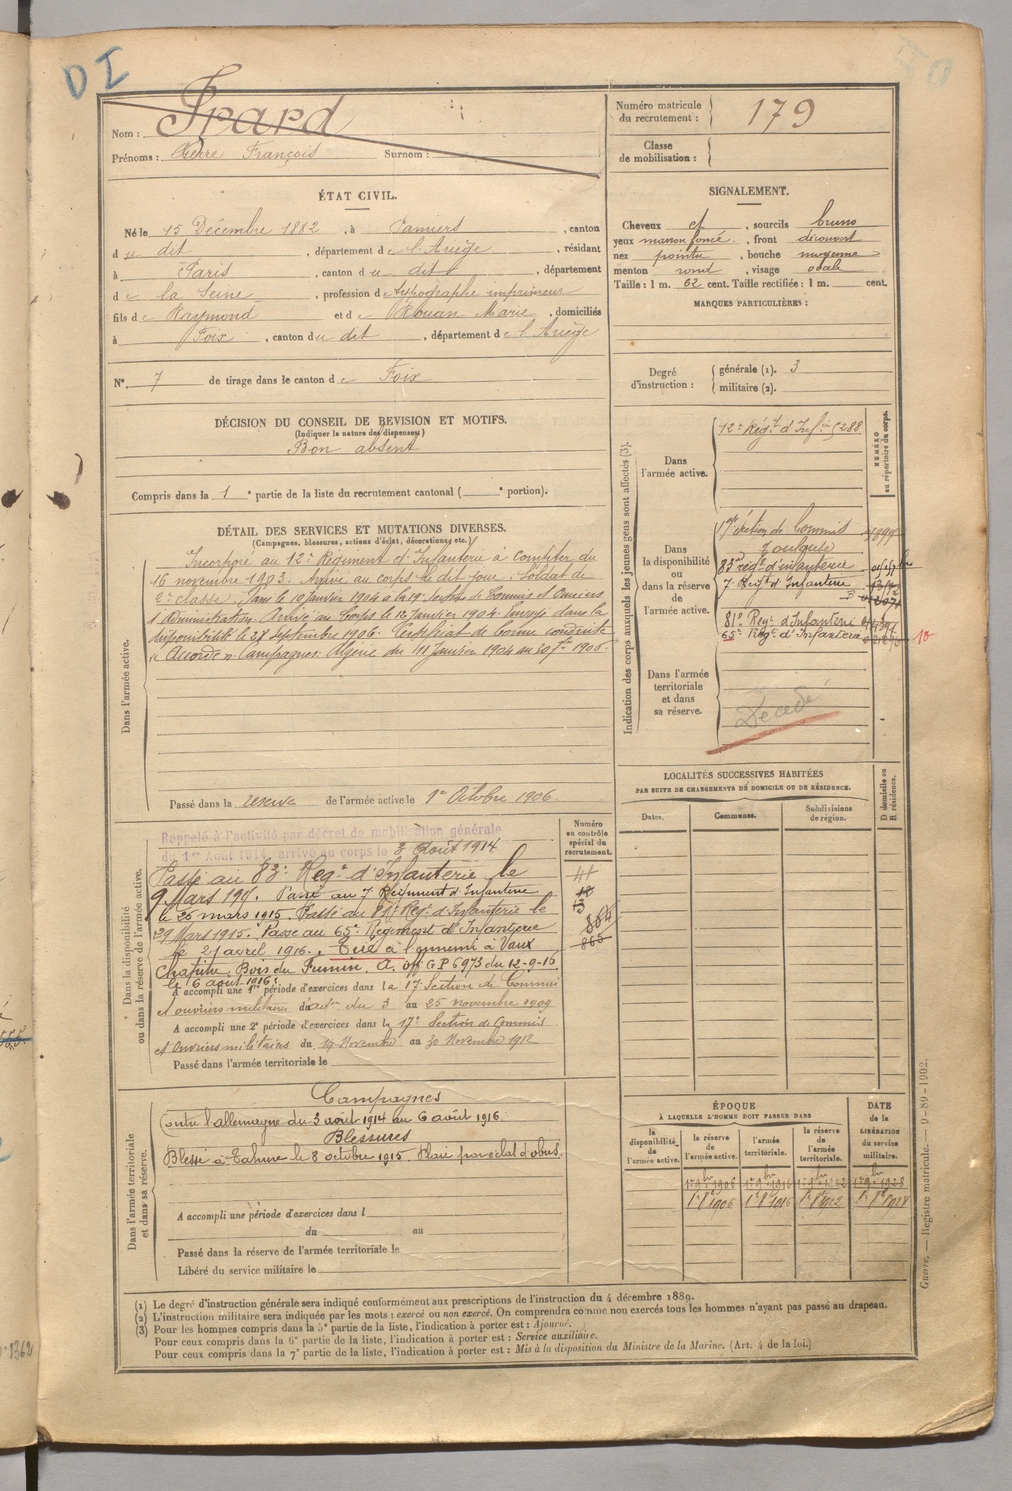 DI
Nom :
Prénoms : Pierre François Surnom :
Numéro matricule du recrutement : 179
Classe de mobilisation :
ÉTAT CIVIL.
Né le 15 Décembre 1882, à Pamiers, canton
du dit, département de l'Ariège, résidant
à Paris, canton du dit, département
de la Seine, profession de typographe imprimeur
fils de Raymond et de Rouan Marie, domiciliés
à Foix, canton du dit, département de l'Ariège
N° 7 de tirage dans le canton de Foix
SIGNALEMENT.
Cheveux et, sourcils bruns
yeux marron foncé, front découvert
nez pointu, bouche moyenne
menton rond, visage ovale
Taille : 1 m. 62 cent. Taille rectifiée : 1 m. cent.
MARQUES PARTICULIÈRES :
Degré d'instruction : générale (1). 3
militaire (2).
DÉCISION DU CONSEIL DE REVISION ET MOTIFS.
(Indiquer la nature des dispenses)
Bon absent
Compris dans la 1e partie de la liste du recrutement cantonal ( e portion).
DÉTAIL DES SERVICES ET MUTATIONS DIVERSES.
(Campagnes, blessures, actions d'éclat, décorations, etc.)
Dans l'armée active.
Incorporé au 12e Régiment d'Infanterie à compter du
16 novembre 1903. Arrivé au corps le dit jour, Soldat de
2e classe. Passé le 10 Janvier 1904 à la 19e Section de Commis et Ouvriers
d'Administration. Arrivé au Corps le 12 Janvier 1904. Envoyé dans la
disponibilité le 27 septembre 1906. Certificat de bonne conduite
"Accordé". Campagnes: Algérie du 11 Janvier 1904 au
Passé dans la réserve de l'armée active le 1er Octobre 1906.
Indication des corps auxquels les jeunes gens sont affectés (3).
NUMÉRO au répertoire du corps.
Dans l'armée active.
12e Régt d'Infrie 5288
Dans la disponibilité ou dans la réserve de l'armée active.
17e Section de Commis
Toulouse
83e regt d'infanterie
7e Regt d'Infanterie
81e Regt d'Infanterie
65e Regt d'Infanterie
Dans l'armée territoriale et dans sa réserve.
Décédé
Dans la disponibilité ou dans la réserve de l'armée active.
Rappelé à l'activité par décret de mobilisation générale
du 1er Août 1914, arrivé au corps le 3 août 1914
Passé au 83e Regt d'Infanterie le
9 Mars 191. Passé au 7e Régiment d'Infanterie
le 25 mars 1915. Passé au 81e Regt d'Infanterie le
29 Mars 1915. Passé au 65e Régiment d'Infanterie
le 21 avril 1916. Tué à l'ennemi à Vaux
Chapitre, Bois du Fumin. A. off G.P 6973 du 12-9-16
le 6 août 1916.
A accompli une 1re période d'exercices dans la 17e Section de Commis
et ouvriers militaires du 3 au 25 novembre 1909
A accompli une 2e période d'exercices dans la 17e Section de Commis
et Ouvriers militaires du 14 Novembre au 30 Novembre 1912
Passé dans l'armée territoriale le
Numéro au contrôle spécial du recrutement.
41
864
865
LOCALITÉS SUCCESSIVES HABITÉES
PAR SUITE DE CHANGEMENTS DE DOMICILE OU DE RÉSIDENCE.
Dates. Communes. Subdivisions de région. D domicile ou R résidence.
Dans l'armée territoriale et dans sa réserve.
Campagnes
Contre l'allemagne du 3 août 1914 au 6 août 1916.
Blessures
Blessé à Tahure le 8 octobre 1915. Plaie par éclat d'obus.
A accompli une période d'exercices dans l
du au
Passé dans la réserve de l'armée territoriale le
Libéré du service militaire le
ÉPOQUE
À LAQUELLE L'HOMME DOIT PASSER DANS
la disponibilité de l'armée active. la réserve de l'armée active. l'armée territoriale. la réserve de l'armée territoriale.
DATE de la LIBÉRATION du service militaire.
(1) Le degré d'instruction générale sera indiqué conformément aux prescriptions de l'instruction du 4 décembre 1889.
(2) L'instruction militaire sera indiquée par les mots : exercé ou non exercé. On comprendra comme non exercés tous les hommes n'ayant pas passé au drapeau.
(3) Pour les hommes compris dans la 5e partie de la liste, l'indication à porter est : Ajourné.
Pour ceux compris dans la 6e partie de la liste, l'indication à porter est : Service auxiliaire.
Pour ceux compris dans la 7e partie de la liste, l'indication à porter est : Mis à la disposition du Ministre de la Marine. (Art. 4 de la loi.)
Guerre. — Registre matricule. — 9-89-1902.